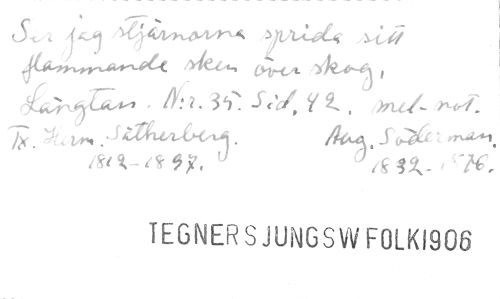 Ser jag stjärnorna sprida sitt
flammande sken över skog,
Längtan. N:r. 35. Sid. 42. mel-not.
Tx. Herm. Sätherberg. Aug. Söderman.
1812-1897. 1832-1876.
TEGNERSJUNGSWFOLK1906